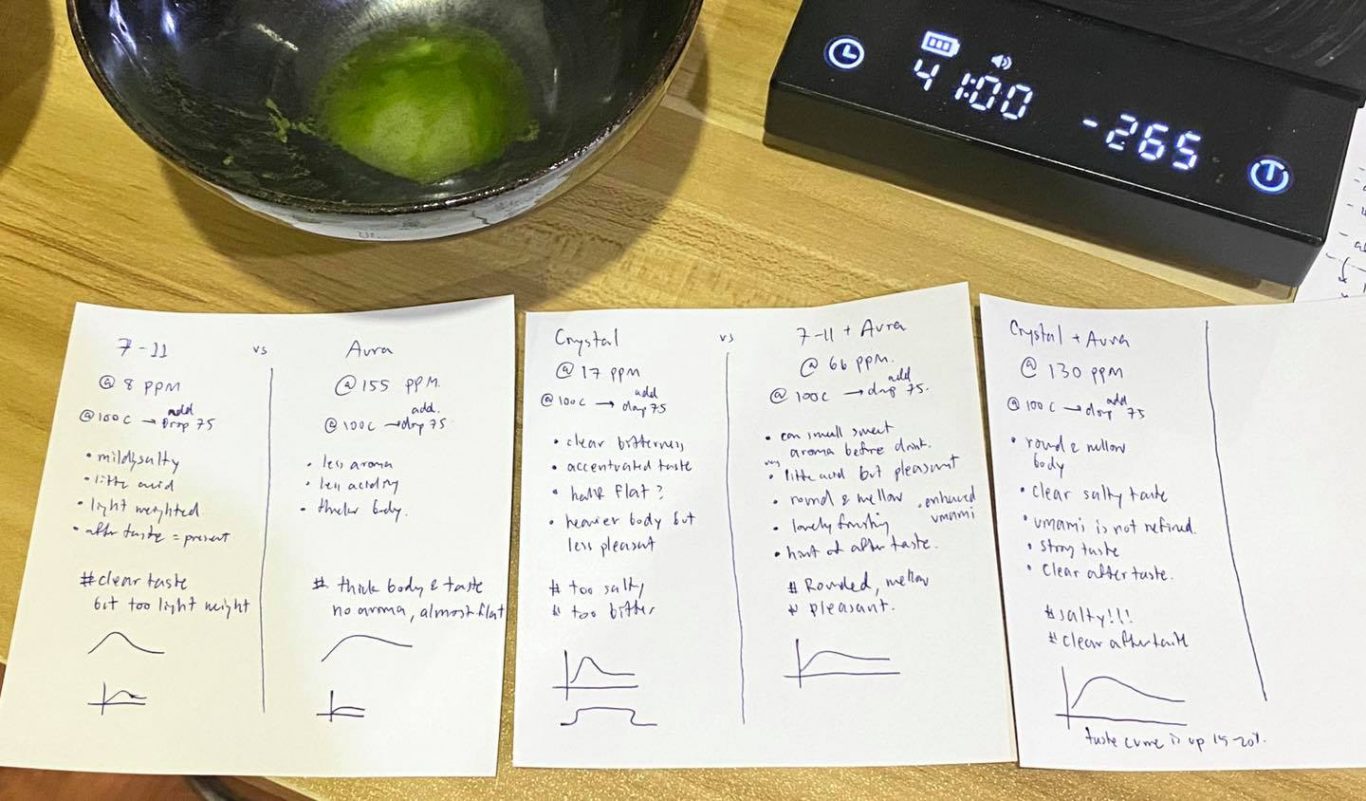 41:00
-265
7-11
vs
Aura
@ 8 PPM
@ 155 PPM.
@100c → add drop 75
@ 100c → add. drop 75
• mildly salty
• little acid
• light weighted
• after taste = present
• less aroma
• less acidity
• thicker body.
# clear taste
but too light weight
# thick body & taste
no aroma, almost flat
Crystal
vs
7-11 + Aura
@ 17 PPM
@ 66 PPM.
@100c → add drop 75
@ 100c → add drop 75.
• clear bitterness
• accentuated taste
• half flat?
• heavier body but
less pleasant
• can smell sweet
aroma before drink.
• little acid but pleasant
• round & mellow
• enhanced
umami
• lovely finishing
• hint of after taste.
# too salty
# too bitter
# Rounded, mellow
# pleasant.
Crystal + Aura
@ 130 PPM
@ 100c → add drop 75
• round & mellow
body
• clear salty taste
• umami is not refined.
• strong taste
• clear after taste.
# salty!!!
# clear after taste
taste curve is up 15-20%.